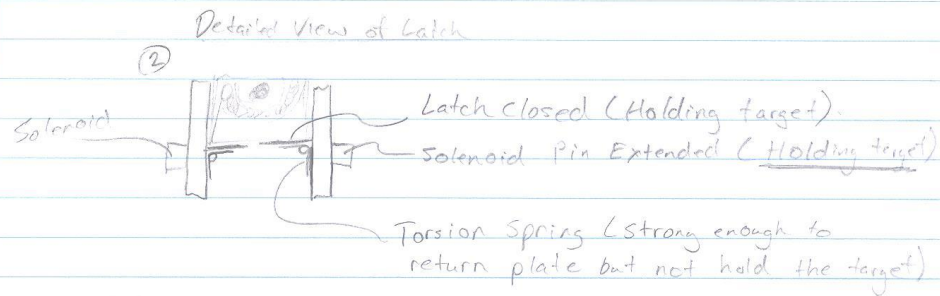 Detailed View of Latch
②
Solenoid
Latch Closed (Holding target).
Solenoid Pin Extended (Holding target)
Torsion Spring (strong enough to
return plate but not hold the target)